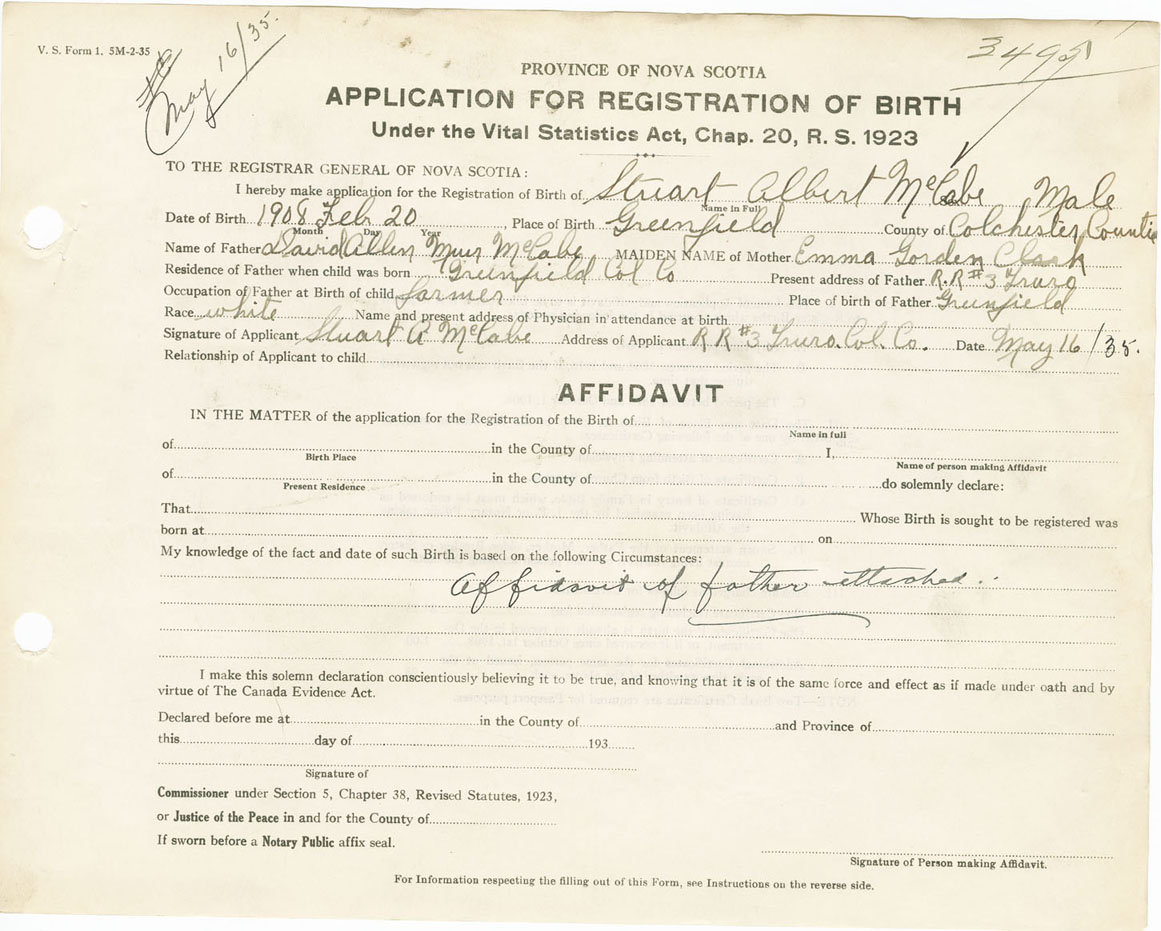 V. S. Form 1. 5M-2-35
May 16/35.
3495
PROVINCE OF NOVA SCOTIA
APPLICATION FOR REGISTRATION OF BIRTH
Under the Vital Statistics Act, Chap. 20, R. S. 1923
TO THE REGISTRAR GENERAL OF NOVA SCOTIA:
I hereby make application for the Registration of Birth of Stuart Albert McCabe Male
Name in Full
Date of Birth 1908 Feb 20, Place of Birth Greenfield County of Colchester Countie
Month Day Year
Name of Father David Allen Muir McCabe MAIDEN NAME of Mother Emma Gorden Clark
Residence of Father when child was born Greenfield Col Co Present address of Father R.R #3 Truro
Occupation of Father at Birth of child farmer Place of birth of Father Greenfield
Race white Name and present address of Physician in attendance at birth
Signature of Applicant Stuart A McCabe Address of Applicant R R #3 Truro. Col. Co. Date May 16/35.
Relationship of Applicant to child
AFFIDAVIT
IN THE MATTER of the application for the Registration of the Birth of
Name in full
of in the County of I,
Birth Place Name of person making Affidavit
of in the County of do solemnly declare:
Present Residence
That Whose Birth is sought to be registered was
born at on
My knowledge of the fact and date of such Birth is based on the following Circumstances:
Affidavit of father attached.
I make this solemn declaration conscientiously believing it to be true, and knowing that it is of the same force and effect as if made under oath and by
virtue of The Canada Evidence Act.
Declared before me at in the County of and Province of
this day of 193
Signature of
Commissioner under Section 5, Chapter 38, Revised Statutes, 1923,
or Justice of the Peace in and for the County of
If sworn before a Notary Public affix seal.
Signature of Person making Affidavit.
For Information respecting the filling out of this Form, see Instructions on the reverse side.